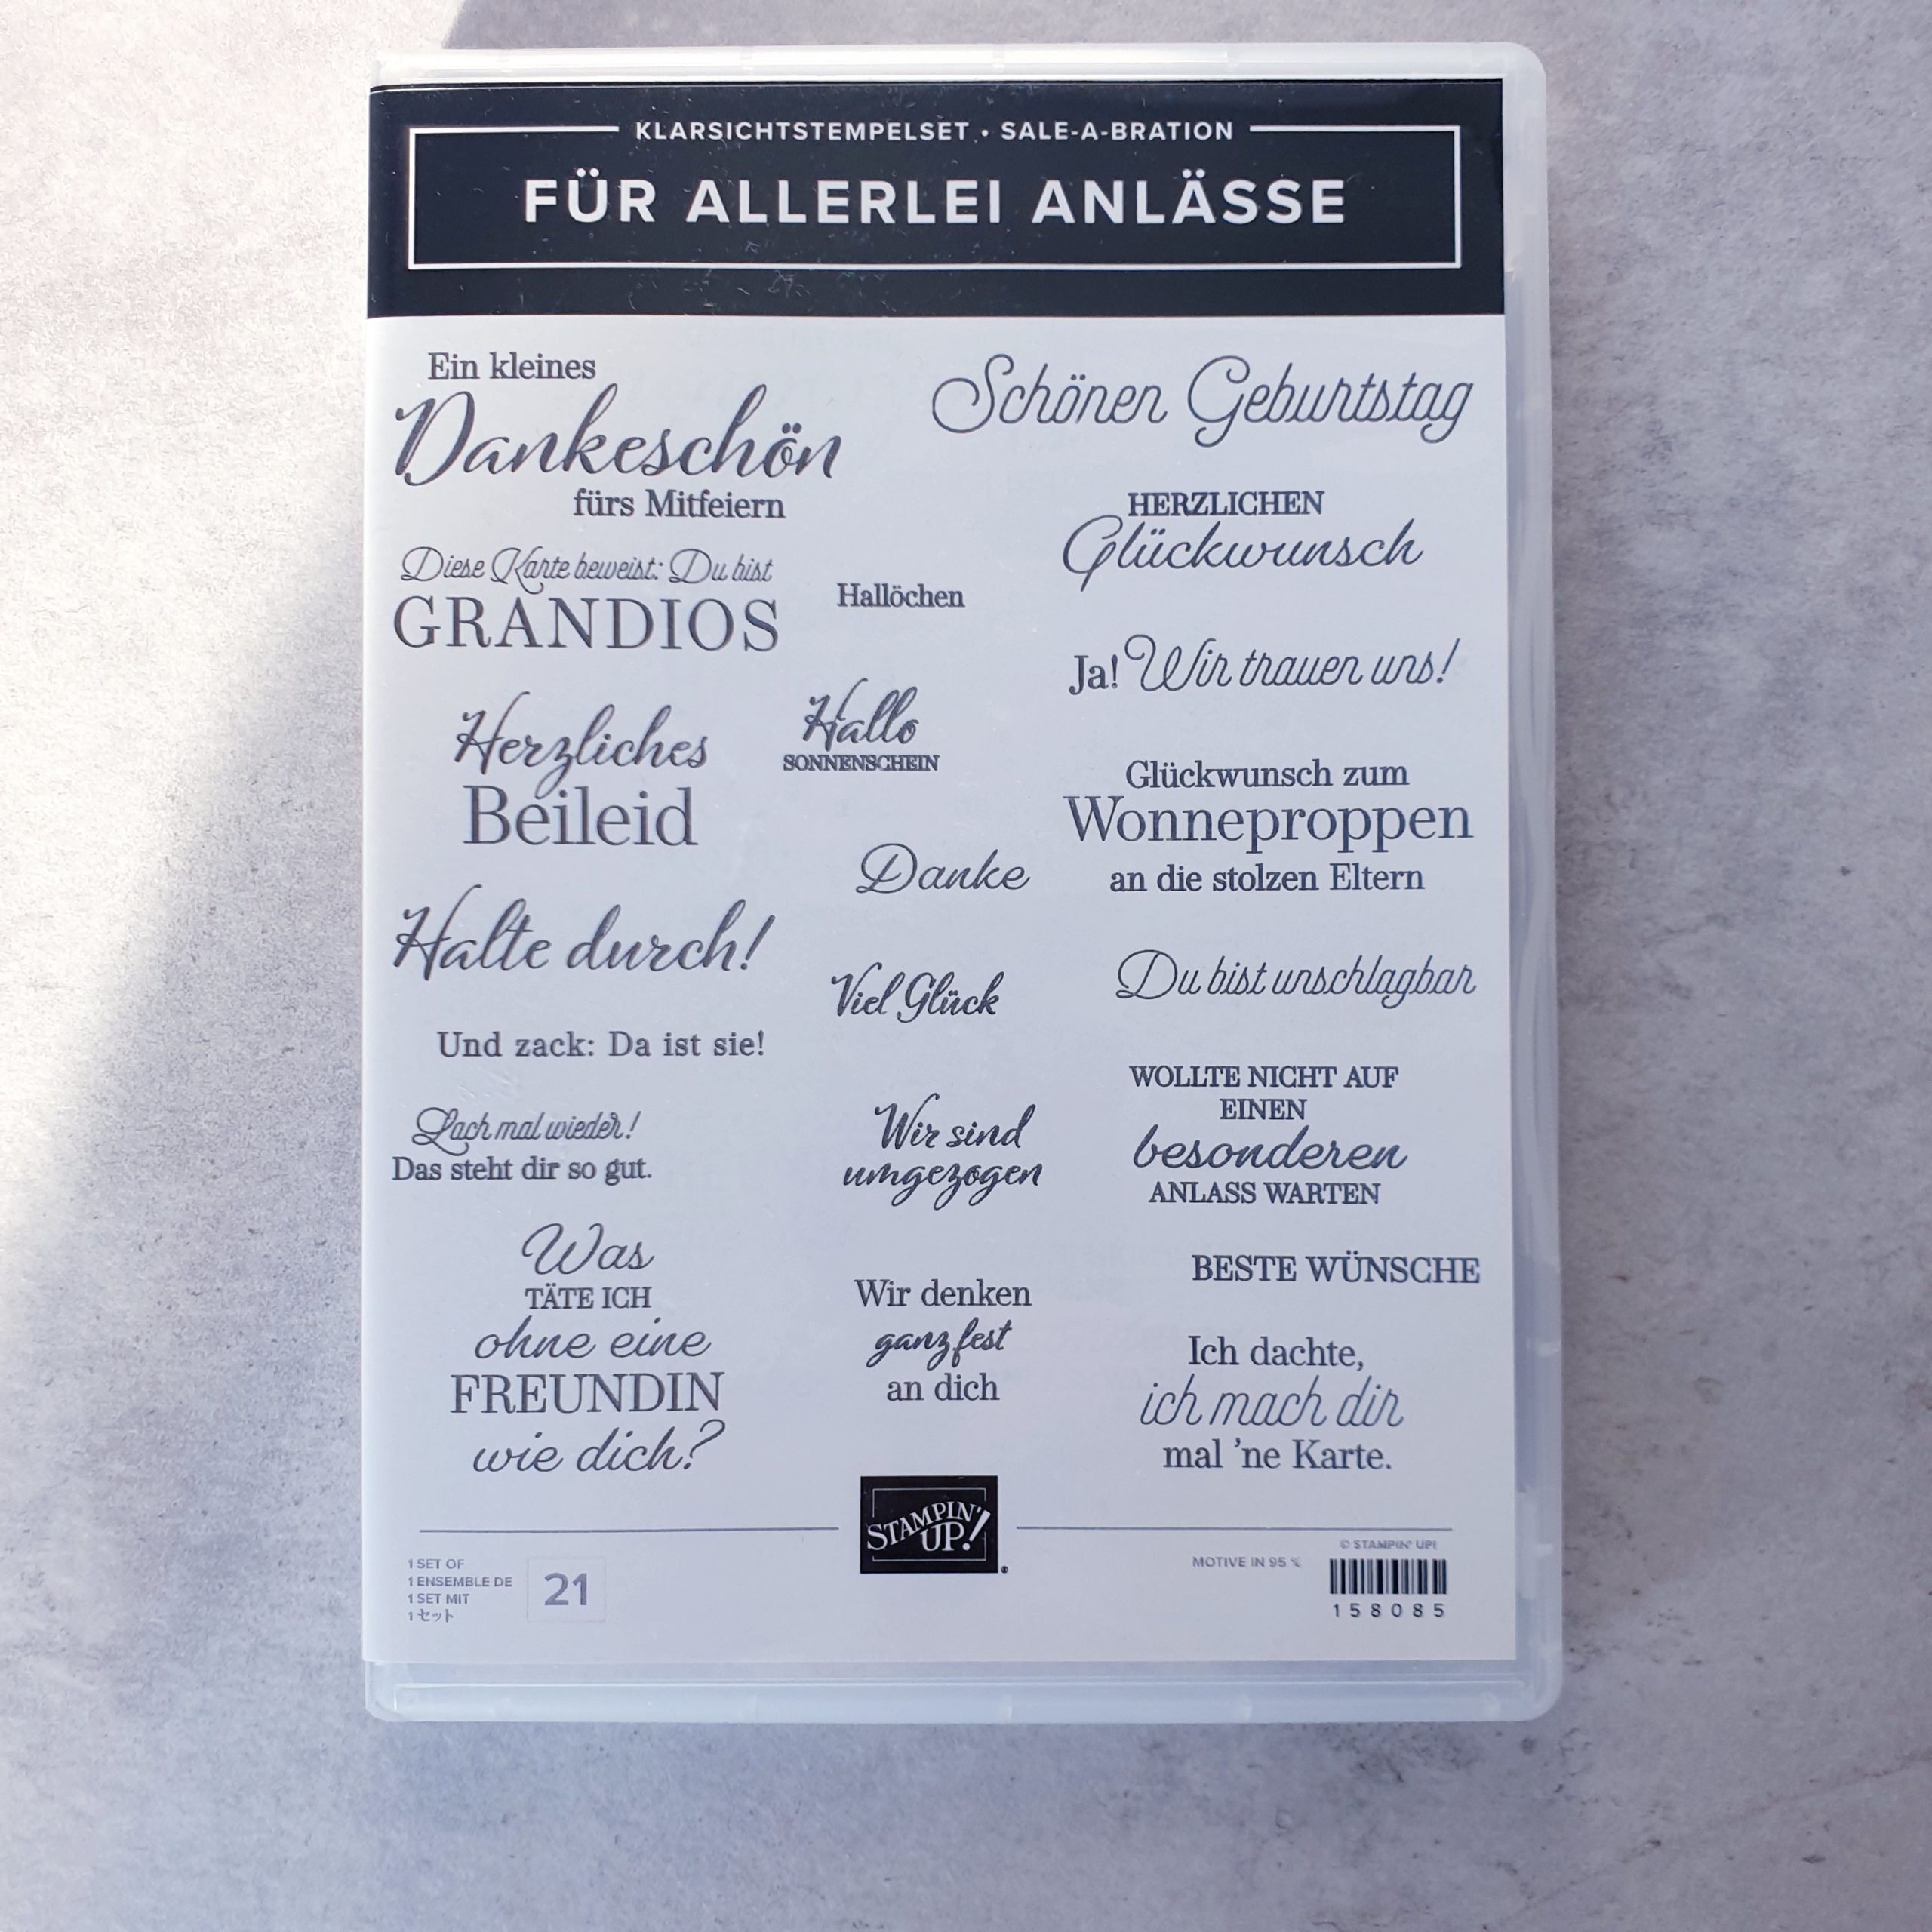 KLARSICHTSTEMPELSET • SALE-A-BRATION
FÜR ALLERLEI ANLÄSSE
Ein kleines
Dankeschön
fürs Mitfeiern
Schönen Geburtstag
HERZLICHEN
Glückwunsch
Diese Karte beweist: Du bist
GRANDIOS
Hallöchen
Ja! Wir trauen uns!
Herzliches
Beileid
Hallo
SONNENSCHEIN
Glückwunsch zum
Wonneproppen
an die stolzen Eltern
Danke
Halte durch!
Viel Glück
Du bist unschlagbar
Und zack: Da ist sie!
WOLLTE NICHT AUF
EINEN
besonderen
ANLASS WARTEN
Lach mal wieder!
Das steht dir so gut.
Wir sind
umgezogen
BESTE WÜNSCHE
Was
TÄTE ICH
ohne eine
FREUNDIN
wie dich?
Wir denken
ganz fest
an dich
Ich dachte,
ich mach dir
mal ’ne Karte.
STAMPIN’
UP!
1 SET OF
1 ENSEMBLE DE
1 SET MIT
1 セット
21
MOTIVE IN 95 %
© STAMPIN’ UP!
158085